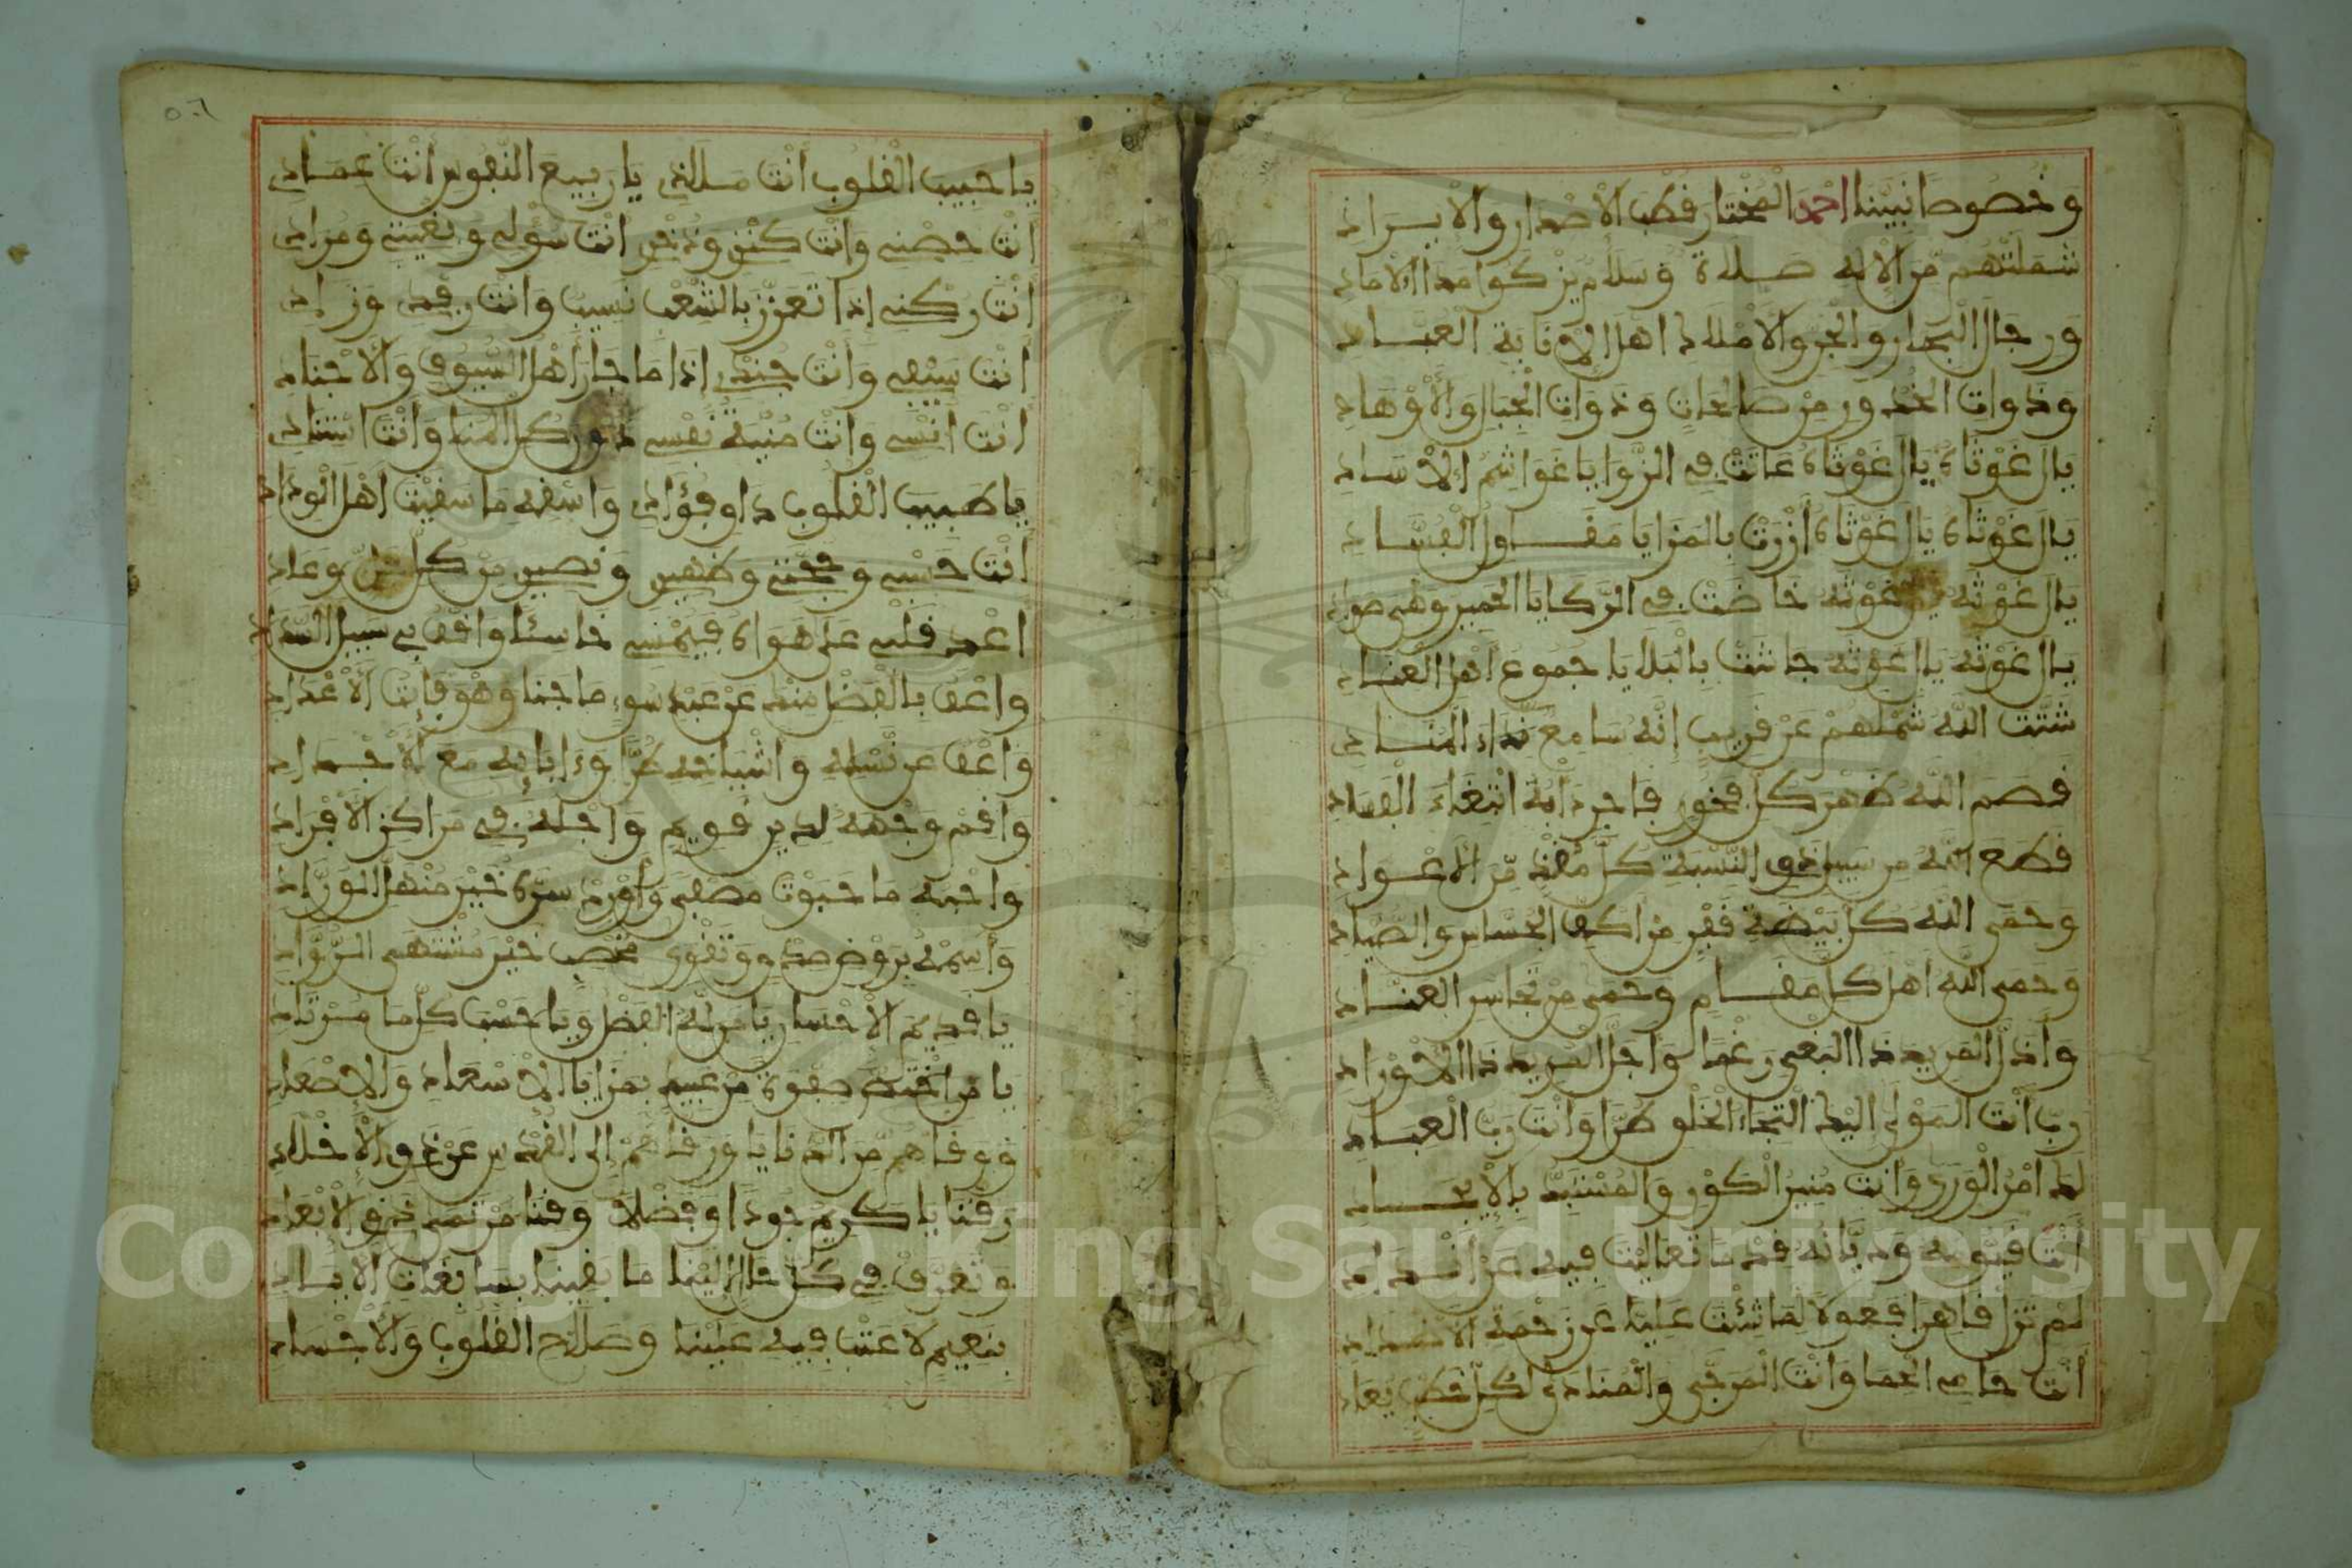 وخصوصا نبينا احمد المختار قطب الاصدار والايراد
شملتهم من الاله صلاة وسلام يزكوا مدا الاماد
ورجال البحار والجن والاملاك اهل الانابة العباد
وذوات الخدور من صالحات وذوات الجبال والاوهاد
يال غوثاه يال غوثاه عاثت في الزوايا غواشم الاساد
يال غوثاه يال غوثاه ازرت بالمزايا مقاول الفساد
يال غوثه يال غوثه خاضت في الركايا الحمير وهي صواد
يال غوثه يال غوثه جاشت بالبلايا جموع اهل العناد
شتت الله شملهم عن قريب انه سامع نداء المنادي
قصم الله ظهر كل فخور فاجر دابه ابتغاء الفساد
قطع الله من سبيل ذوي النسبة كل ملد من الاعواد
وحمى الله كل بيضة فقر من اكف الخساس والصياد
وحمى الله اهل كل مقام وحمى من تجاسر العناد
واذل المريد ذا البغي رغما واجل المريد ذا الاوراد
رب انت المولى اليك التجاء الخلق طرا وانت رب العباد
لك امر الورى وانت منير الكون والمستبد بالايجاد
انت قيومه وديانه قدما تعاليت فيه عن انداد
لم تزل قاهرا فعولا لما شئت عليا عن زحمة الاضداد
انت حامي الحما وانت المرجى والمنادى لكل خطب يعاد
٥٠٦
يا حبيب القلوب انت ملاذي يا ربيع النفوس انت عمادي
انت حصني وانت كنزي وذخري انت سؤلي وبغيتي ومرادي
انت ركني اذا تعزز بالشعب نسيب وانت رفدي وزادي
انت سيفي وانت جندي اذا ما جار اهل السيوف والاجناد
انت انسي وانت منية نفسي دون كل المنا وانت استنادي
يا طبيب القلوب داو فؤادي واسقه ما سقيت اهل الوداد
انت حسبي وحجتي وظهيري ونصيري من كل وعاد
اعد قلبي على هواه فيمسي خاسئا واقف بي سبيل السداد
واعف بالفضل منك عن عبد سوء ما جنا وهو فائت الاعداد
واعف عن نسله واشياخه طرا وءابائه مع الاجداد
واقم وجهه لدين قويم واحله في مراكز الافراد
واحبه ما حبوت مصطفى وأورد سره خير منهل الوراد
وأسمه بروض صدق وتقوى مخصب خير مشتهى الرواد
يا قديم الاحسان يا من له الفضل ويا حسب كل ما مرتاد
يا من اختص صفوة من عبيد بمزايا الاسعاد والاصعاد
ووقاهم من الدنايا ورقاهم الى القدس عن ذوي الاخلاد
رقنا يا كريم جودا وفضلا وقنا من تمد ذوي الابعاد
وتعرف في كل حال الينا ما بقينا بسابغات الاياد
بنعيم لا عتب فيه علينا وصلاح القلوب والاجساد
Copyright © King Saud University